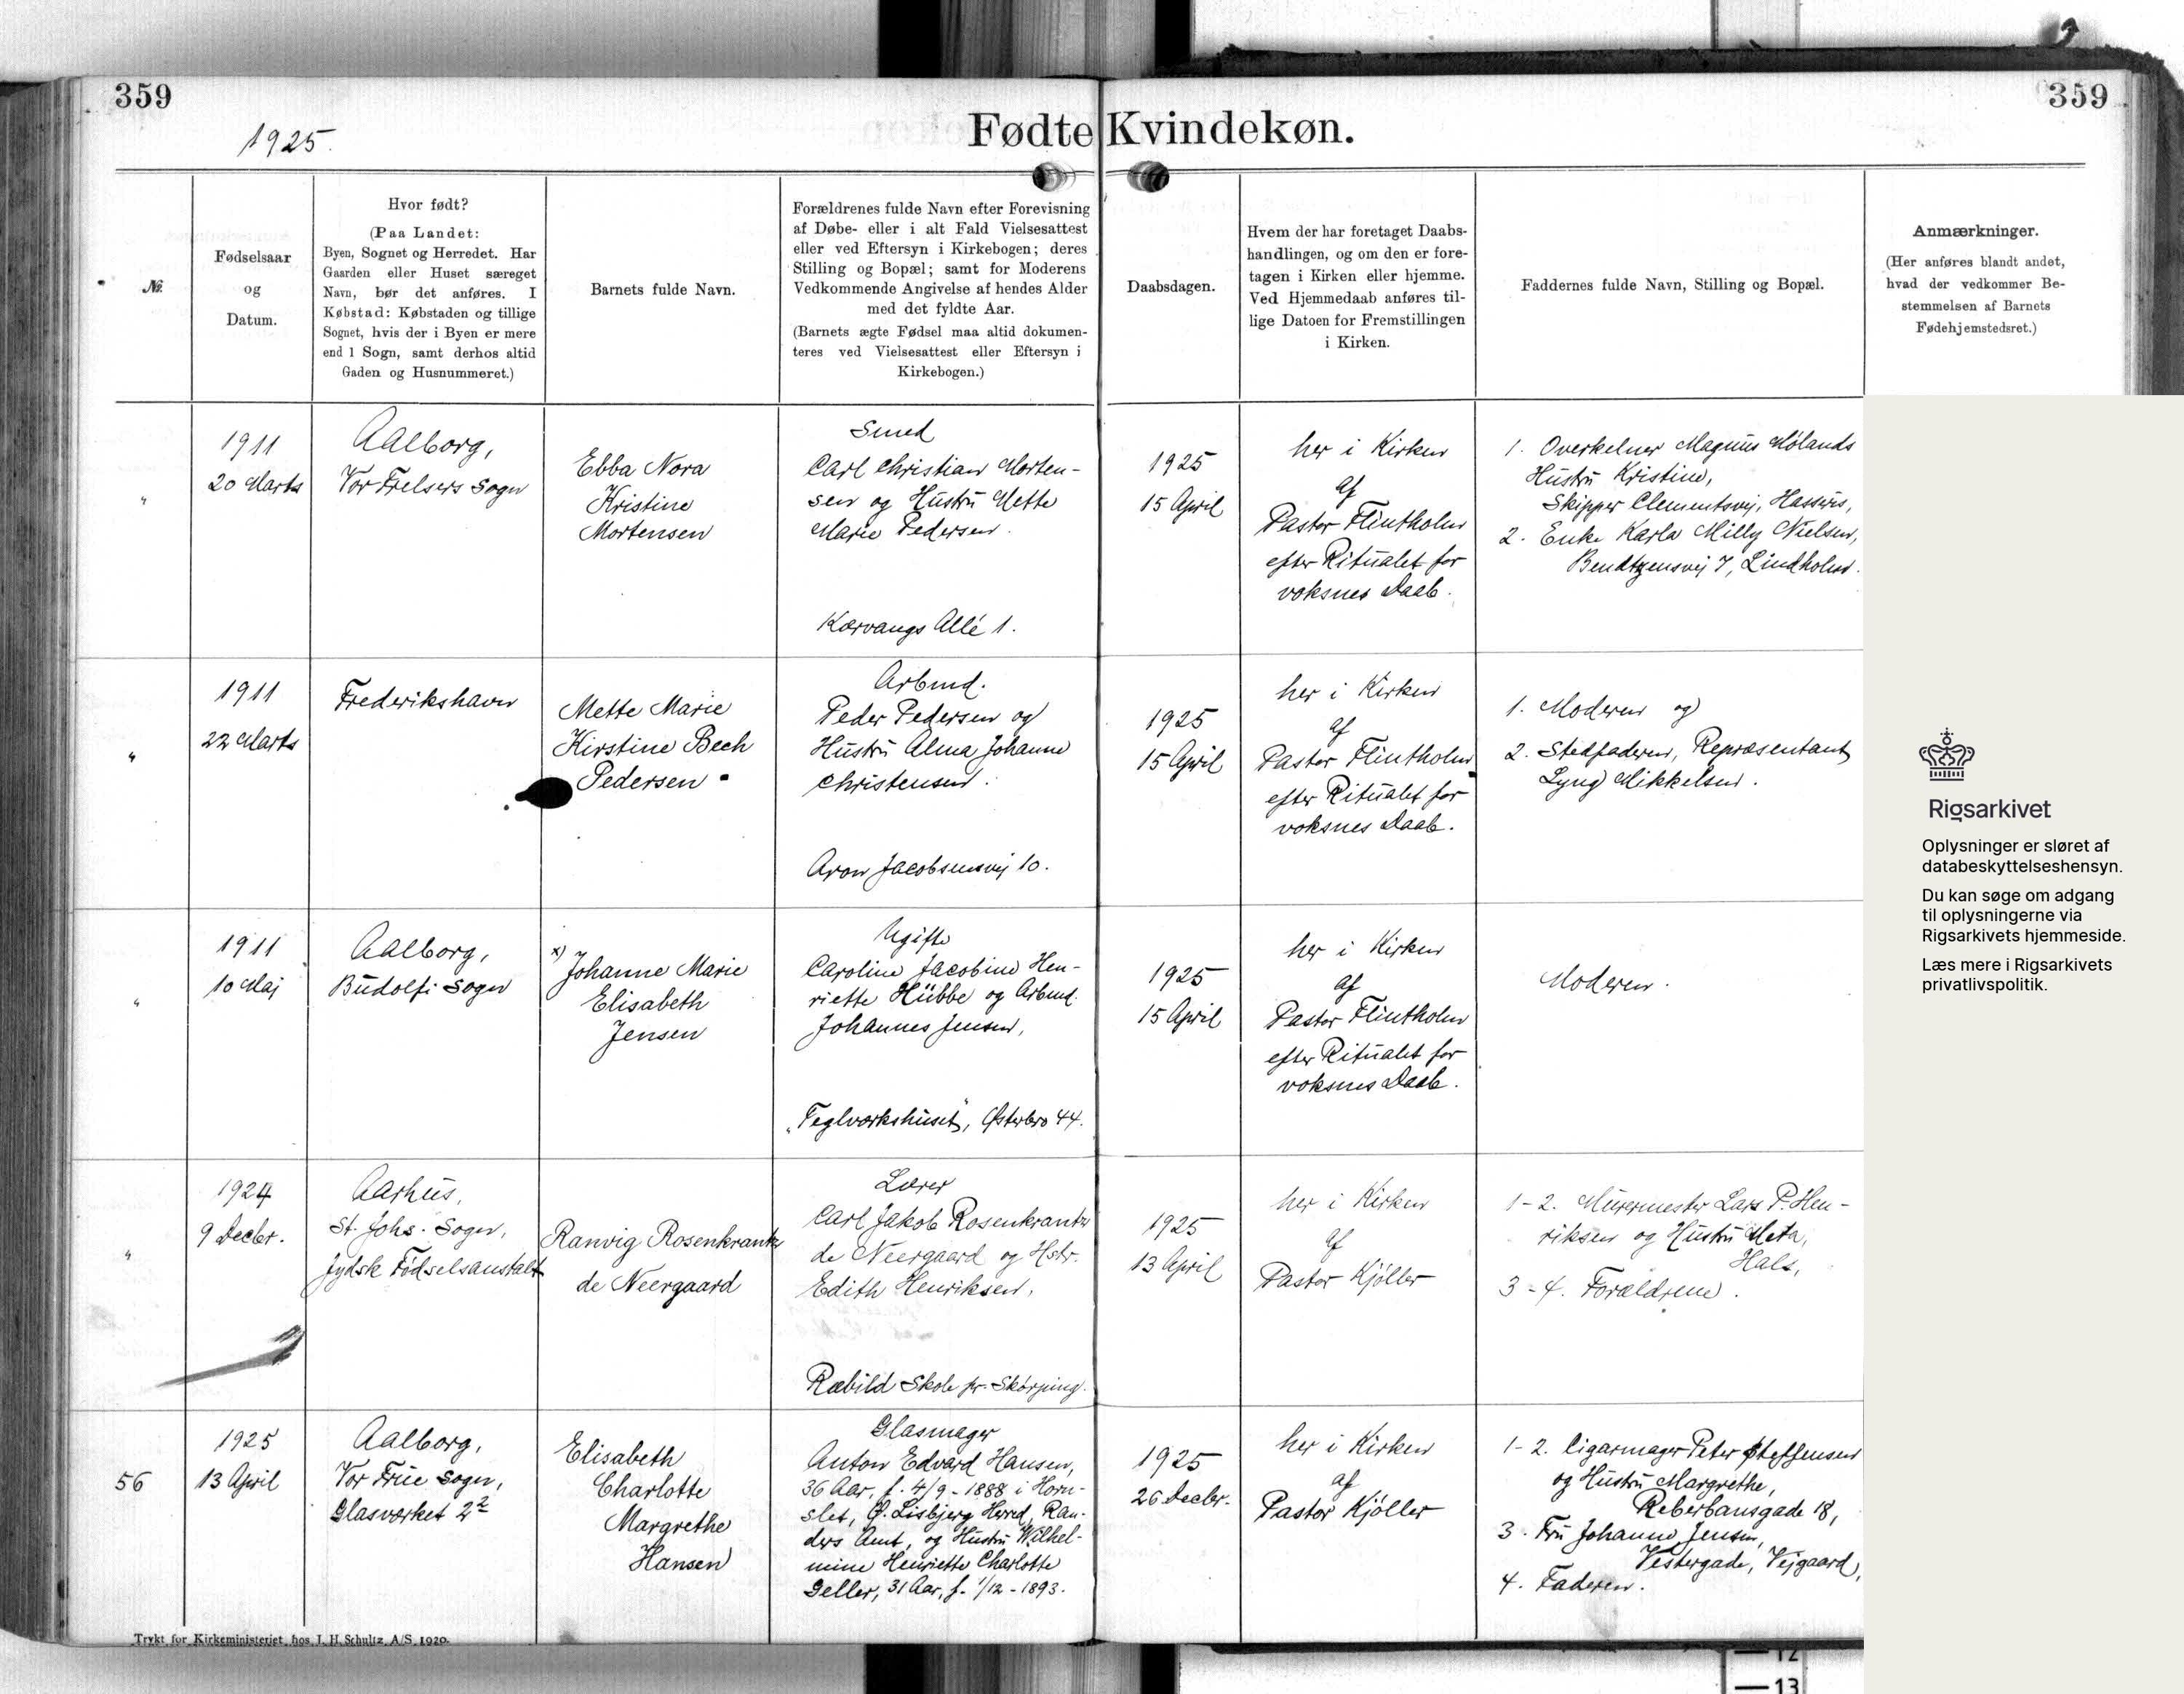 359
359
1925.
Fødte Kvindekøn.
№.
Fødselsaar
og
Datum.
Hvor født?
(Paa Landet:
Byen, Sognet og Herredet. Har
Gaarden eller Huset særeget
Navn, bør det anføres. I
Købstad: Købstaden og tillige
Sognet, hvis der i Byen er mere
end 1 Sogn, samt derhos altid
Gaden og Husnummeret.)
Barnets fulde Navn.
Forældrenes fulde Navn efter Forevisning
af Døbe- eller i alt Fald Vielsesattest
eller ved Eftersyn i Kirkebogen; deres
Stilling og Bopæl; samt for Moderens
Vedkommende Angivelse af hendes Alder
med det fyldte Aar.
(Barnets ægte Fødsel maa altid dokumen-
teres ved Vielsesattest eller Eftersyn i
Kirkebogen.)
Daabsdagen.
Hvem der har foretaget Daabs-
handlingen, og om den er fore-
tagen i Kirken eller hjemme.
Ved Hjemmedaab anføres til-
lige Datoen for Fremstillingen
i Kirken.
Faddernes fulde Navn, Stilling og Bopæl.
Anmærkninger.
(Her anføres blandt andet,
hvad der vedkommer Be-
stemmelsen af Barnets
Fødehjemstedsret.)
"
1911
20 Marts
Aalborg,
Vor Frelsers Sogn
Ebba Nora
Kristine
Mortensen
Smed
Carl Christian Morten-
sen og Hustru Mette
Marie Pedersen.
Kærvangs Allé 1.
1925
15 April
her i Kirken
af
Pastor Flintholm
efter Ritualet for
voksnes Daab.
1. Overkelner Magnus Mølands
Hustru Kristine,
Skipper Clementsvej, Hasseris,
2. Enke Karla Milly Nielsen,
Bendtzensvej 7, Lindholm.
"
1911
22 Marts
Frederikshavn
Mette Marie
Kirstine Bech
Pedersen
Arbmd.
Peder Pedersen og
Hustru Alma Johanne
Christensen.
Aron Jacobsensvej 10.
1925
15 April
her i Kirken
af
Pastor Flintholm
efter Ritualet for
voksnes Daab.
1. Moderen og
2. Stedfaderen, Repræsentant
Lyng Mikkelsen.
"
1911
10 Maj
Aalborg,
Budolfi Sogn
x)
Johanne Marie
Elisabeth
Jensen
Ugifte
Caroline Jacobine Hen-
riette Hübbe og Arbmd.
Johannes Jensen,
"Teglværkshuset", Østerbro 44.
1925
15 April
her i Kirken
af
Pastor Flintholm
efter Ritualet for
voksnes Daab.
Moderen.
"
1924
9 Decbr.
Aarhus,
St. Johs. Sogn,
Jydsk Fødselsanstalt
Ranvig Rosenkrantz
de Neergaard
Lærer
Carl Jakob Rosenkrantz
de Neergaard og Hstr.
Edith Henriksen,
Rebild Skole pr. Skørping.
1925
13 April
her i Kirken
af
Pastor Kjøller
1-2. Murermester Lars P. Hen-
riksen og Hustru Meta,
Hals,
3-4. Forældrene.
56
1925
13 April
Aalborg,
Vor Frue Sogn,
Glasværket 2²
Elisabeth
Charlotte
Margrethe
Hansen
Glasmager
Anton Edvard Hansen,
36 Aar, f. 4/9-1888 i Horn-
slet, Ø. Lisbjerg Herred, Ran-
ders Amt, og Hustru Wilhel-
mine Henriette Charlotte
Geller, 31 Aar, f. 1/12-1893.
1925
26 Decbr.
her i Kirken
af
Pastor Kjøller
1-2. Cigarmager Peter Steffensen
og Hustru Margrethe,
Reberbansgade 18,
3. Fru Johanne Jensen,
Vestergade, Vejgaard,
4. Faderen.
Trykt for Kirkeministeriet hos J. H. Schultz A/S 1920.
Rigsarkivet
Oplysninger er sløret af
databeskyttelseshensyn.
Du kan søge om adgang
til oplysningerne via
Rigsarkivets hjemmeside.
Læs mere i Rigsarkivets
privatlivspolitik.
12
13